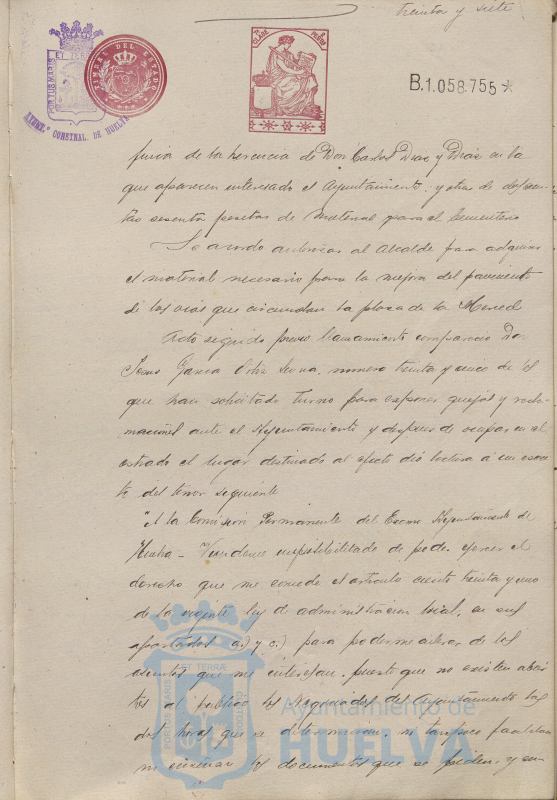 treinta y siete
PORTUS MARIS ET TERRÆ
AYUNT.º CONSTNAL. DE HUELVA
TIMBRE DEL ESTADO
B.1.058.755*
de la herencia de Don Carlos Diaz y Diaz en la
que aparecen interesado el Ayuntamiento y otra de
sesenta pesetas de material para el Cementerio
Se acordo autorizar al Alcalde para adquirir
el material necesario para la mejora del pavimento
de las vias que circundan la plaza de la Merced
Acto seguido previo llamamiento comparecio Don
Jesus Garcia Ortiz numero treinta y cinco de los
que han solicitado turno para exponer quejas y recla-
maciones ante el Ayuntamiento y despues de ocupar en el
estrado el lugar destinado al efecto dió lectura á un escri-
to del tenor siguiente
"A la Comisión Permanente del Excmo Ayuntamiento de
Huelva - Viendome imposibilitado de poder ejercer el
derecho que me concede el articulo ciento treinta y uno
de la vigente ley de administracion local, en sus
apartados a) y c) para poderme enterar de los
asuntos que me interesan, puesto que no existen abier-
tos al publico los Negociados del Ayuntamiento las
dos horas que se determinan, ni tampoco facilitan
ni los documentos que se piden y
PORTUS MARIS ET TERRÆ CUSTODIA
Ayuntamiento de
HUELVA